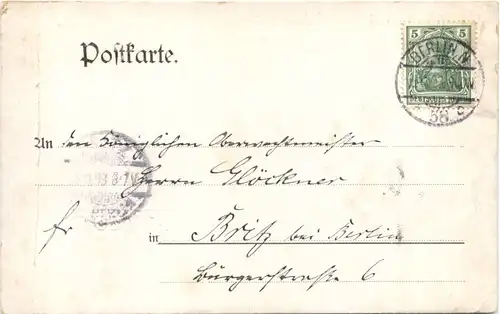 Postkarte.
5 5
BERLIN N
58
An den Königlichen Oberwachtmeister
8-7
Herrn Glöckner
fr
in Britz bei Berlin
Bürgerstraße 6